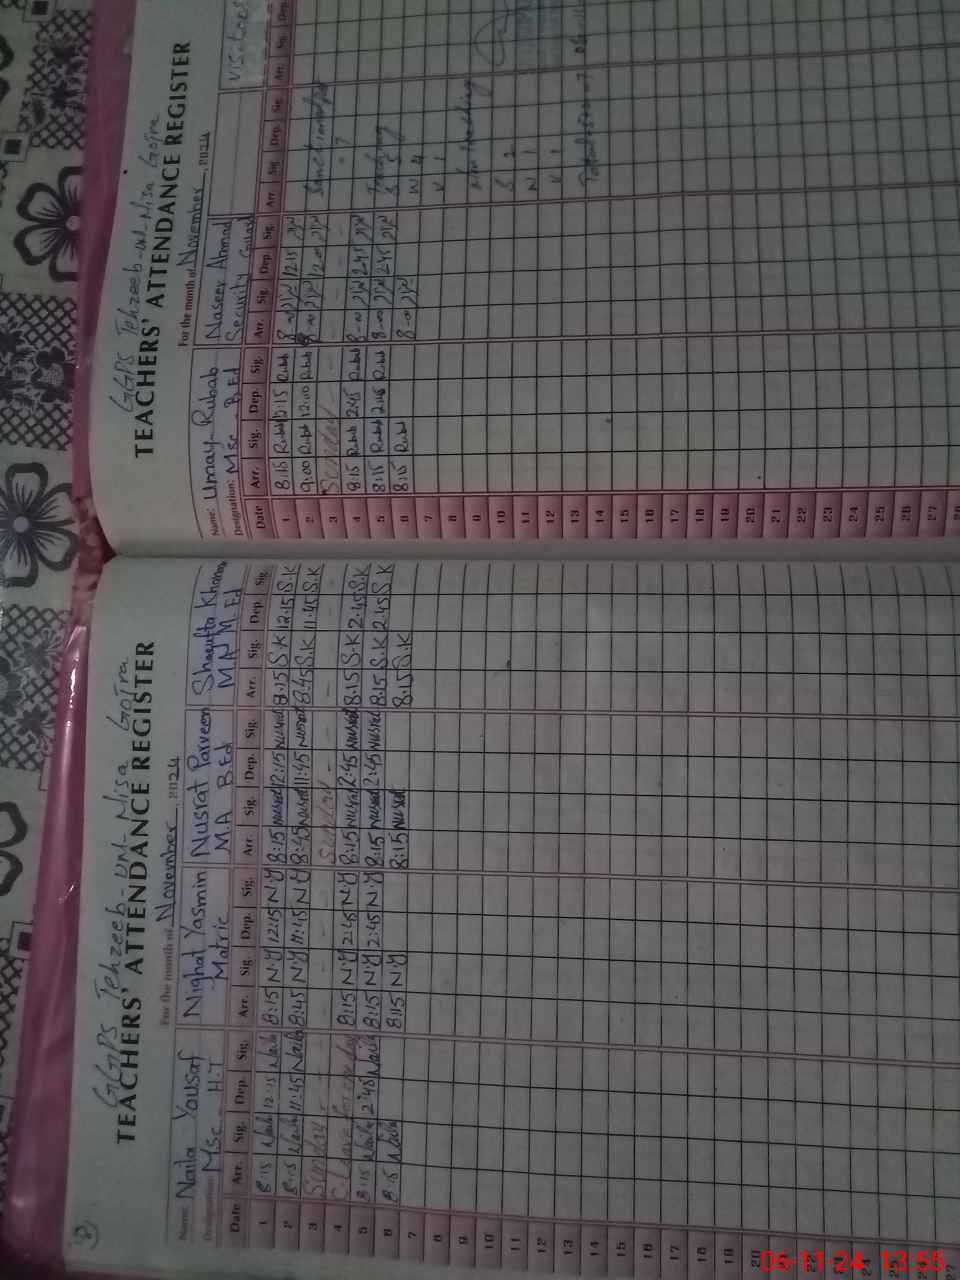 GGPS Tehzeeb-un-Nisa Gojra
TEACHERS' ATTENDANCE REGISTER
For the month of November, 2024
Name: Naila Yousaf Nighat Yasmin Nusrat Parveen Shagufta Khanam
Designation: MSc H.T Matric M.A B.Ed M.A M.Ed
Date Arr. Sig. Dep. Sig. Arr. Sig. Dep. Sig. Arr. Sig. Dep. Sig. Arr. Sig. Dep. Sig.
1 8:15 Naila 12:15 Naila 8:15 N.Y 12:15 N.Y 8:15 Nusrat 12:15 Nusrat 8:15 S.K 12:15 S.K
2 8:15 Naila 11:45 Naila 8:45 N.Y 11:45 N.Y 8:45 Nusrat 11:45 Nusrat 8:45 S.K 11:45 S.K
3 Sunday Sunday
4 C.Leave for one day 8:15 N.Y 2:45 N.Y 8:15 Nusrat 2:45 Nusrat 8:15 S.K 2:45 S.K
5 8:15 Naila 2:45 Naila 8:15 N.Y 2:45 N.Y 8:15 Nusrat 2:45 Nusrat 8:15 S.K 2:45 S.K
6 8:15 Naila 8:15 N.Y 8:15 Nusrat 8:15 S.K
7
8
9
10
11
12
13
14
15
16
17
18
19
20
22
24
27
GGPS Tehzeeb-un-Nisa Gojra
TEACHERS' ATTENDANCE REGISTER
For the month of November, 2024
Name: Umay Rubab Naseer Ahmad Visitors
Designation: Msc B.Ed Security Guard
Date Arr. Sig. Dep. Sig. Arr. Sig. Dep. Sig. Arr. Sig. Dep. Sig. Arr. Sig. Dep.
1 8:15 Rubab 12:15 Rubab 8:00 12:15
2 9:00 Rubab 12:00 Rubab 8:00 12:00 Sanctioned
3 Sunday
4 8:15 Rubab 2:45 Rubab 8:00 2:45 Teaching
5 8:15 Rubab 2:45 Rubab 8:00 2:45 S 5
6 8:15 Rubab 8:00 W 4
7 V 1
8
9 Non Teaching
10 S 2
11 W 1
12 V 1
13
14
15
16
17
18
19
20
21
22
23
24
25
26
27
28
06-11-24 13:55